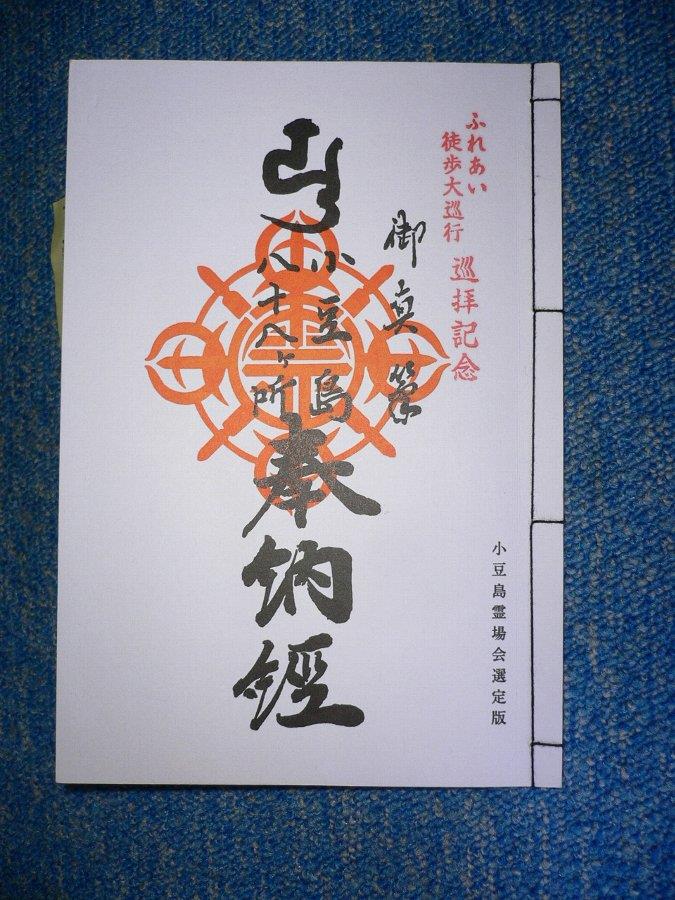 ふれあい
徒歩大巡行
巡拝記念
小豆島霊場会選定版
御真筆
小豆島
八十八ヶ所
奉納経